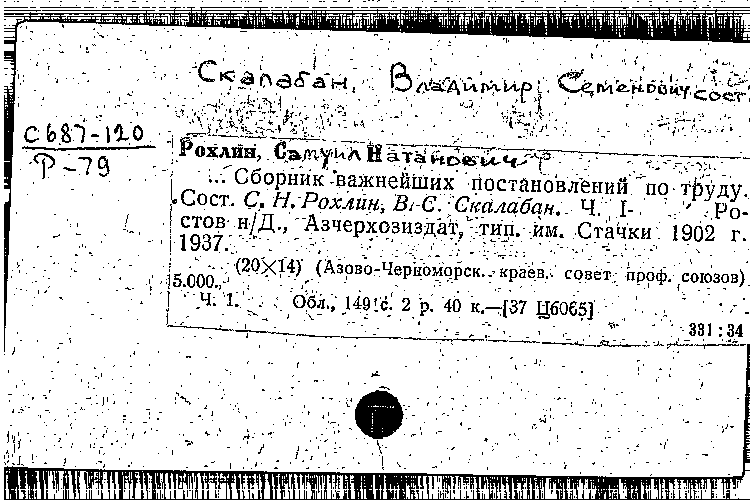 Скалабан, Владимир Семенович сост
С687-120
Р-79
Рохлин, Самуил Натанович
... Сборник важнейших постановлений по труду.
Сост. С. Н. Рохлин, В. С. Скалабан. Ч. I- Ро-
стов н/Д., Азчерхозиздат, тип. им. Стачки 1902 г.
1937.
(20×14) (Азово-Черноморск. краев. совет проф. союзов)
5.000.
Ч. I. Обл., 149 с. 2 р. 40 к.—[37 Ц6065]
331 : 34